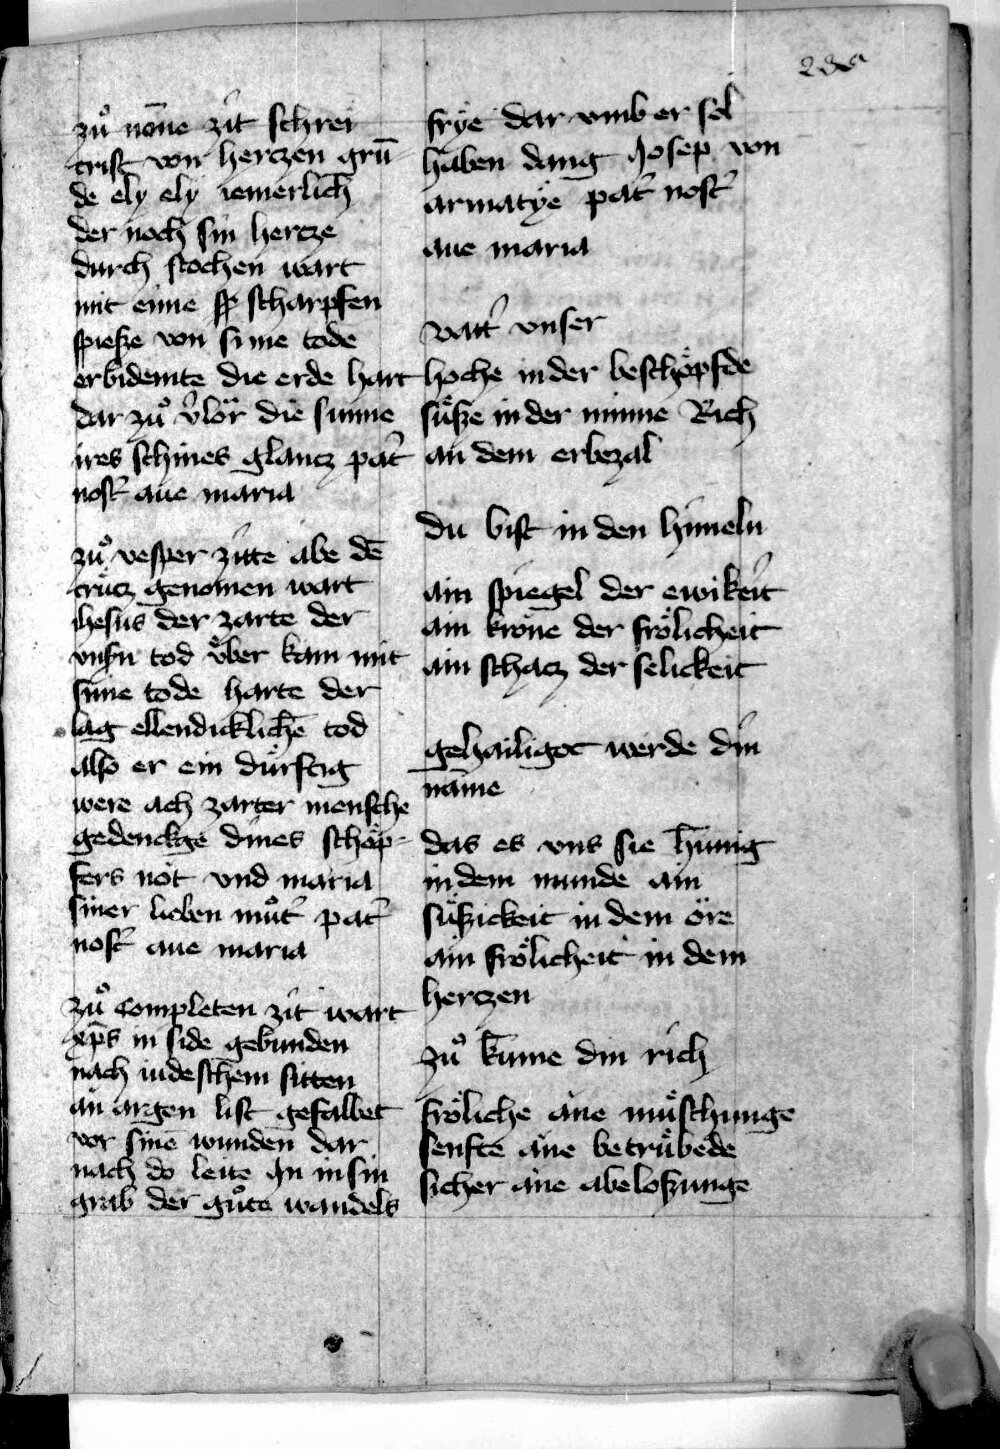 zuͦ nōne zit schrei
crist von hertzen grū-
de ely ely iemerlich
der noch sin hertze
durch stochen wart
mit eime sp scharpfen
spiesze von sime tode
erbidemte die erde hart
dar zuͦ v̓lor die sunne
ires schines glantz pat̓
nost̓ aue maria
zuͦ vesper zitte abe dē
crütz genomen wart
ihesus der zarte der
vnsn̄ tod v̈ber kam mit
sime tode harte der
lag ellendicklichē tod
also er ein dürftig
were ach zarter mensche
gedenckge dines schöp-
fers not vnd maria
siner lieben muͦt̓ pat̓
nost̓ aue maria
zuͦ completen zit wart
xp̄s in side gebunden
nach iudeschem sitten
an argen list gesalbet
vor sinē wunden dar
nach do leite In in sin
grab der guͦte wandels
frye dar vmb er sol
haben dang Josep von
armatye pat̓ nost̓
aue maria
Vatt̓ vnser
hoche in der beschöpfde
süsze in der minne Rich
an dem erbezal
du bist in den himeln
ain spiegel der ewikeit
ain krone der frölicheit
ain schatz der selickeit
gehailigot werde din
name
das es vns sie hunig
in dem munde ain
süszickeit in dem ore
ain frölicheit in dem
hertzen
zuͦ kume din rich
fröliche ane müschunge
senfte ane betrübede
sicher ane abeloszunge